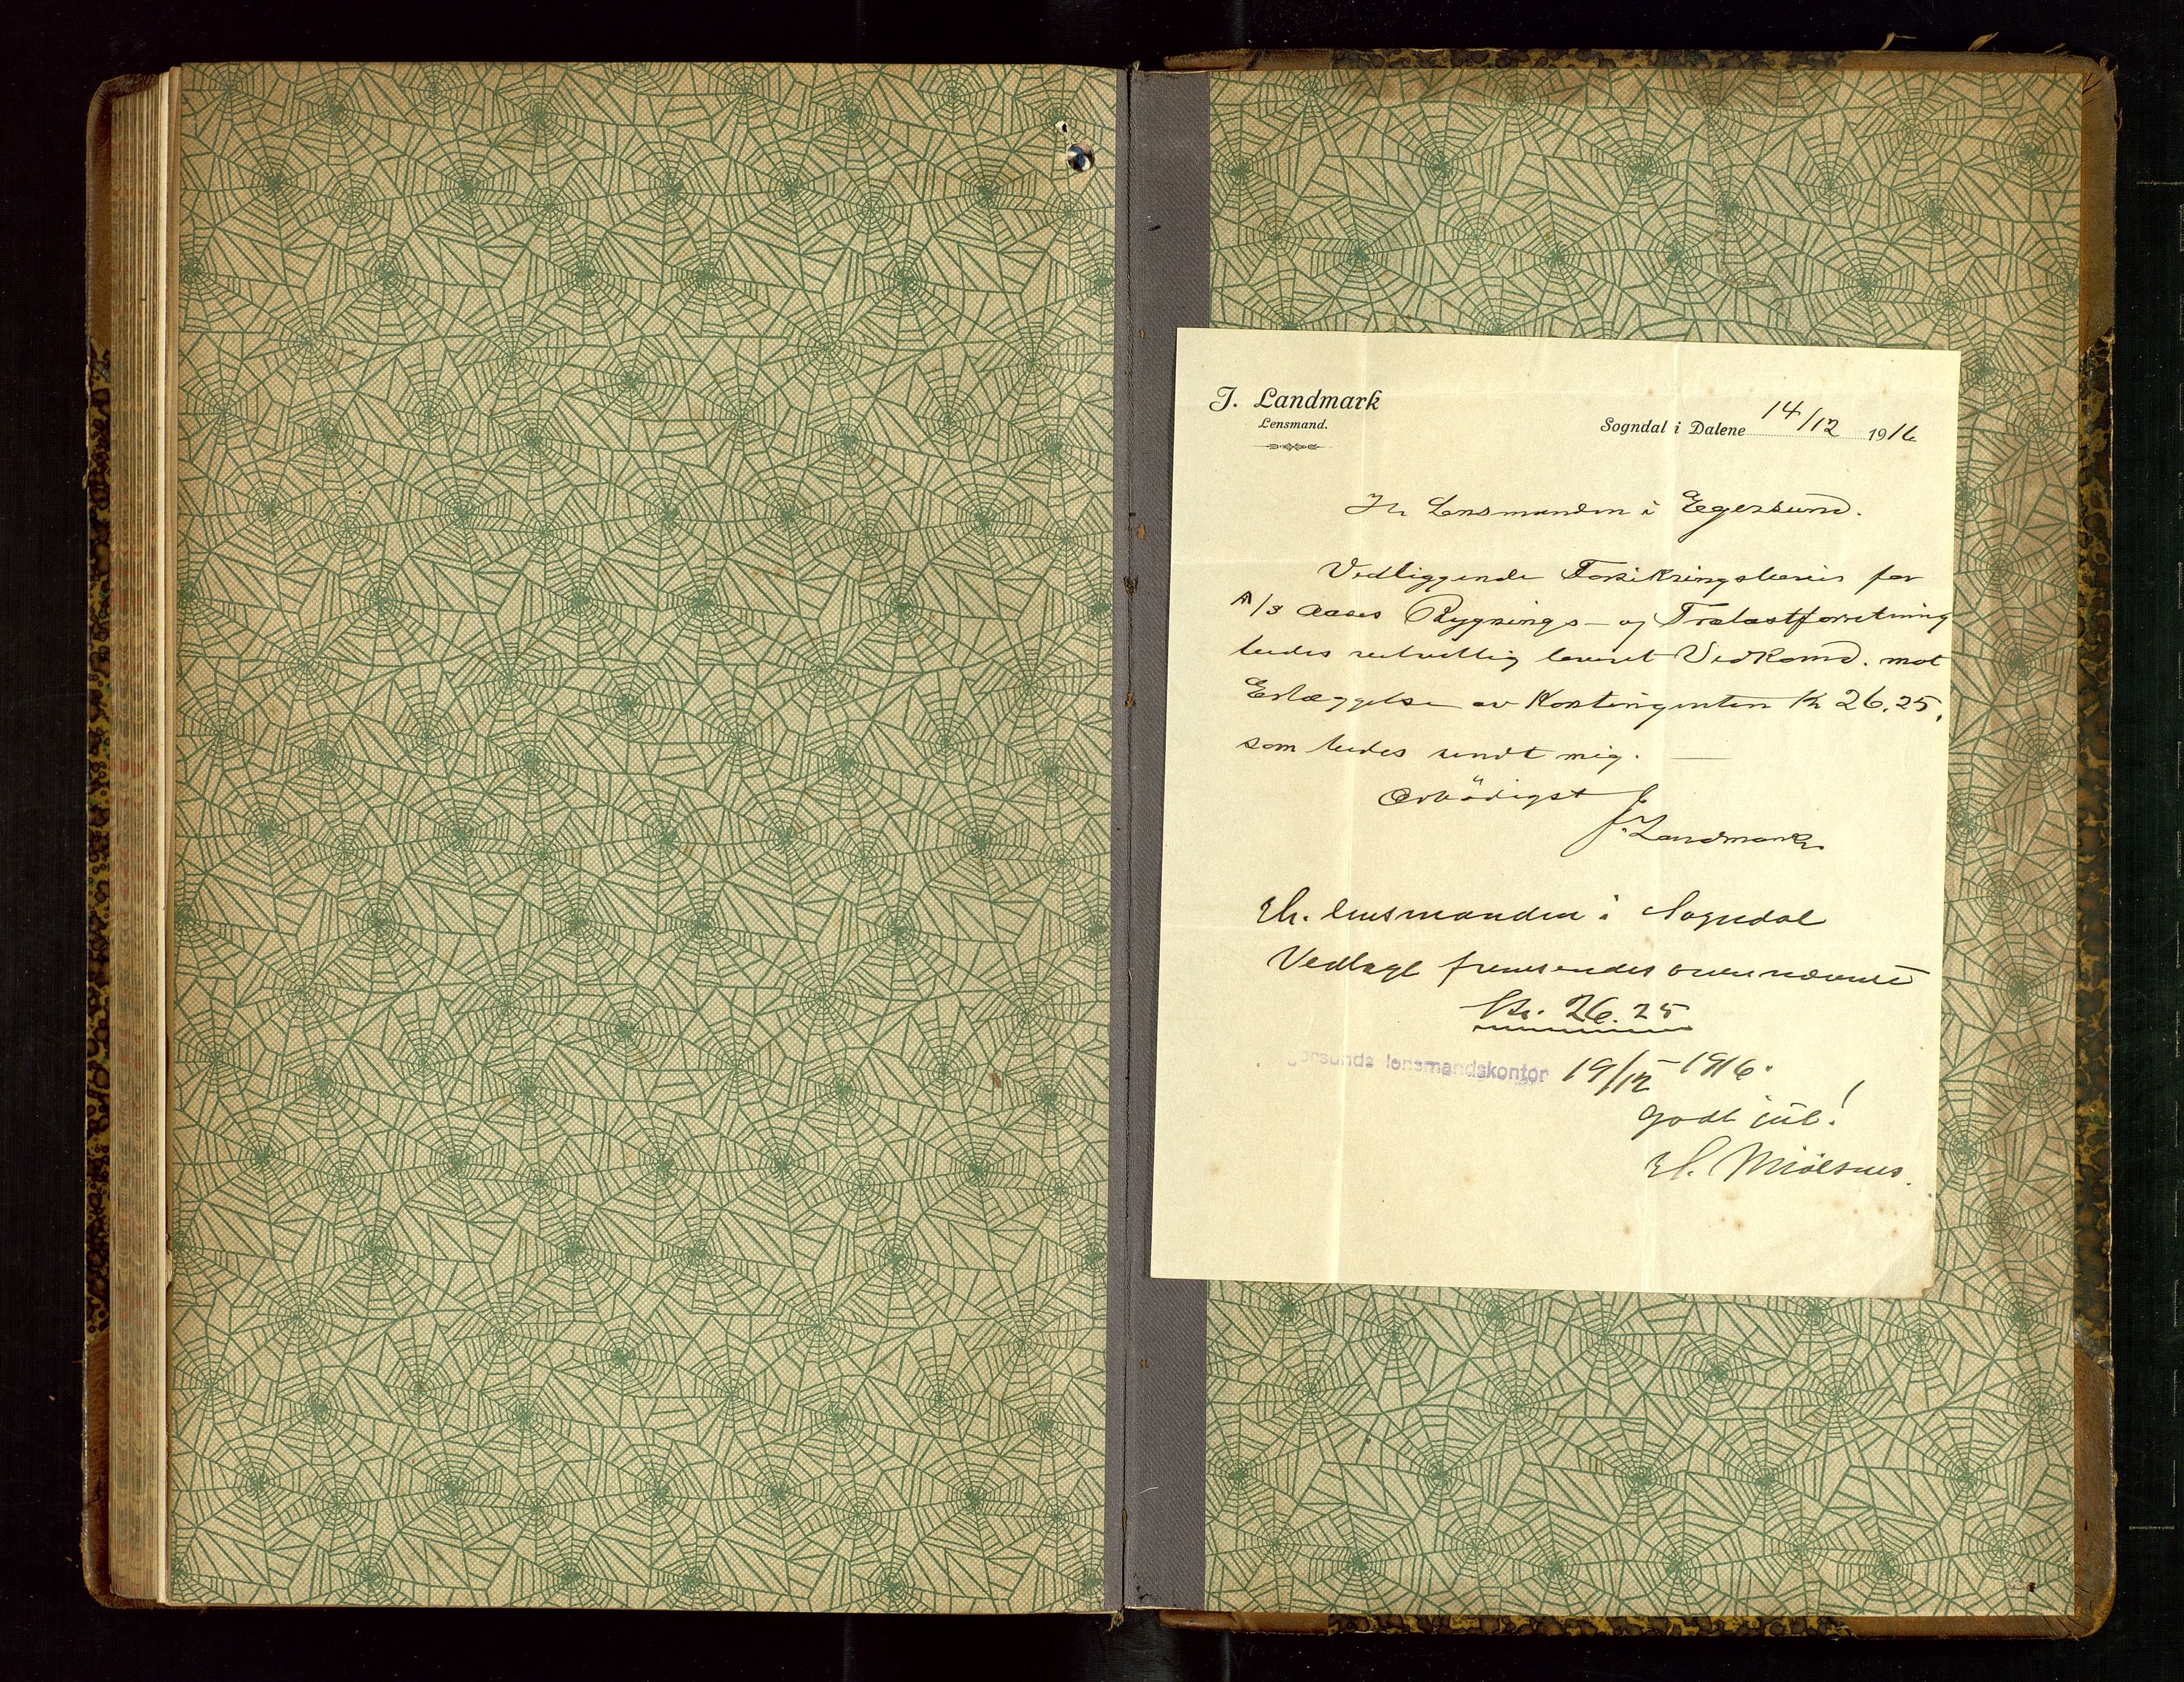 J. Landmark
Lensmand.
Sogndal i Dalene 14/12 1916
Hr Lensmanden i Egersund.
Vedliggende Forsikringsbevis for
A/S Aases Bygnings- og Trælastforretning
bedes velvillig leveret Vedkomd. mot
Erlæggelse av Kontingenten Kr 26.25,
som bedes sendt mig. —
Ærbödigst
J. Landmark
Hr. lensmanden i Sogndal
Vedlagt fremsendes ovennævnte
Kr. 26.25
gersunds lensmandskontor 19/12 - 1916.
Godt jul!